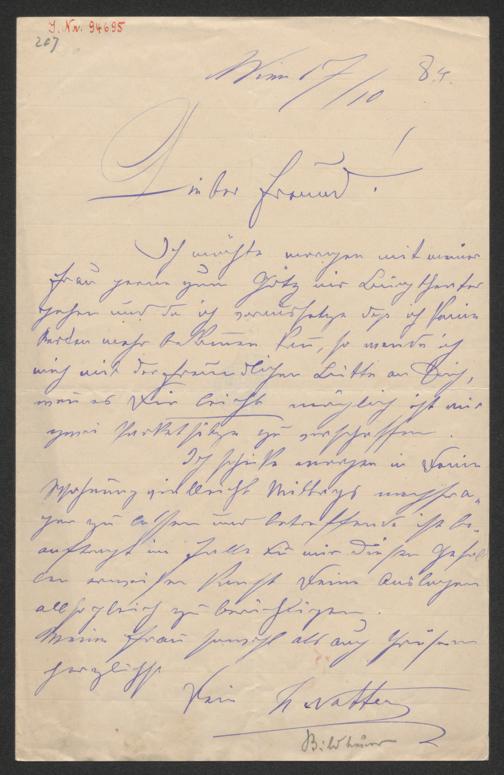 J. Nr. 94695
207
Wien 17/10 84.
Lieber Freund!
Ich möchte morgen mit meiner
Frau gerne zum Götz ins Burgtheater
gehen und da ich voraussetze daß ich keine
Karten mehr bekommen kann, so wende ich
mich mit der freundlichen Bitte an Dich,
wenn es Dir leicht möglich ist mir
zwei Parketsitze zu verschaffen.
Ich schicke morgen in Deine
Wohnung vielleicht Mittags nachfra-
gen zu lassen und betreffende ist be-
auftragt im Falle Du mir diesen Gefal-
len erweisen kannst Deine Auslagen
allsogleich zu berichtigen.
Meine Frau sowohl als auch grüßen
herzlichst
Dein H Natter
Bildhauer